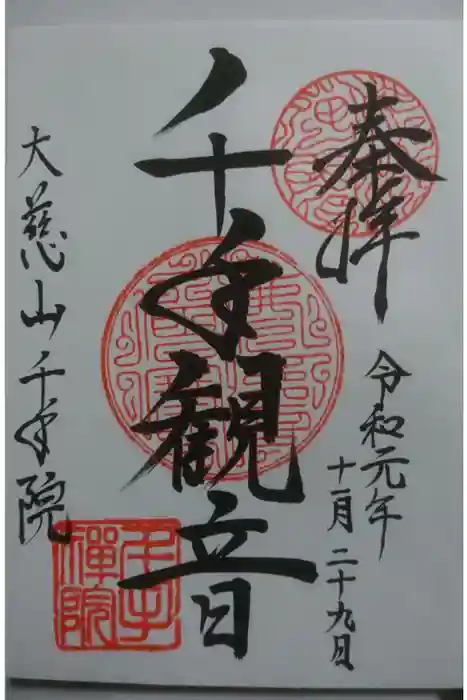 奉拝
令和元年
十一月二十九日
千手観音
大慈山千手院
千手
禅院